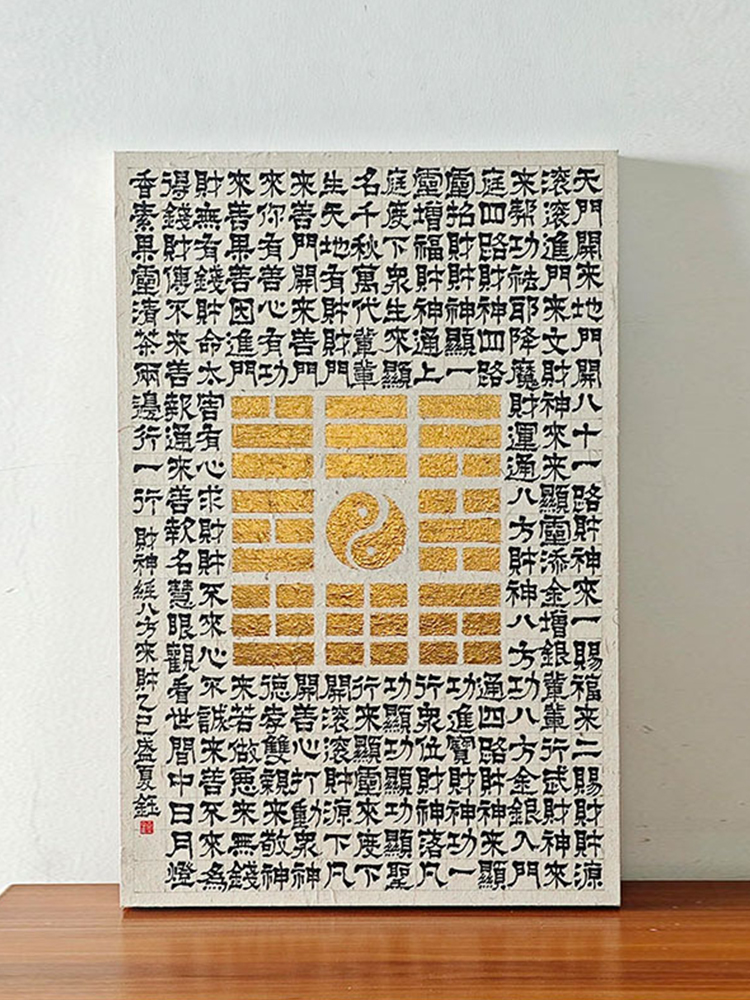 天門開來地門開八十一路財神來一賜福來二賜財財源
滾滾進門來文財神來來顯靈添金增銀輩輩行武財神來
來幫功祛耶降魔財運通八方財神八方功八方金銀入門
庭四路財神四路通四路財神來顯
靈招財財神顯一功進寶財神功一
靈增福財神通上行衆位財神落凡
庭度下衆生來顯功顯功顯功顯聖
名千秋萬代輩輩行來顯靈來度下
生天地有財財門開滾滾財源下凡
來善門開來善門開善心打動衆神
來你有善心有功德孝雙親來敬神
來善果善因進門來若做惡來無錢
財無有錢財命太害有心求財財不來心不誠來善不來為
得錢財傳不來善報通來善報名慧眼觀看世間中日月燈
香素果靈清茶兩邊行一行 財神經八方來財乙巳盛夏鈺